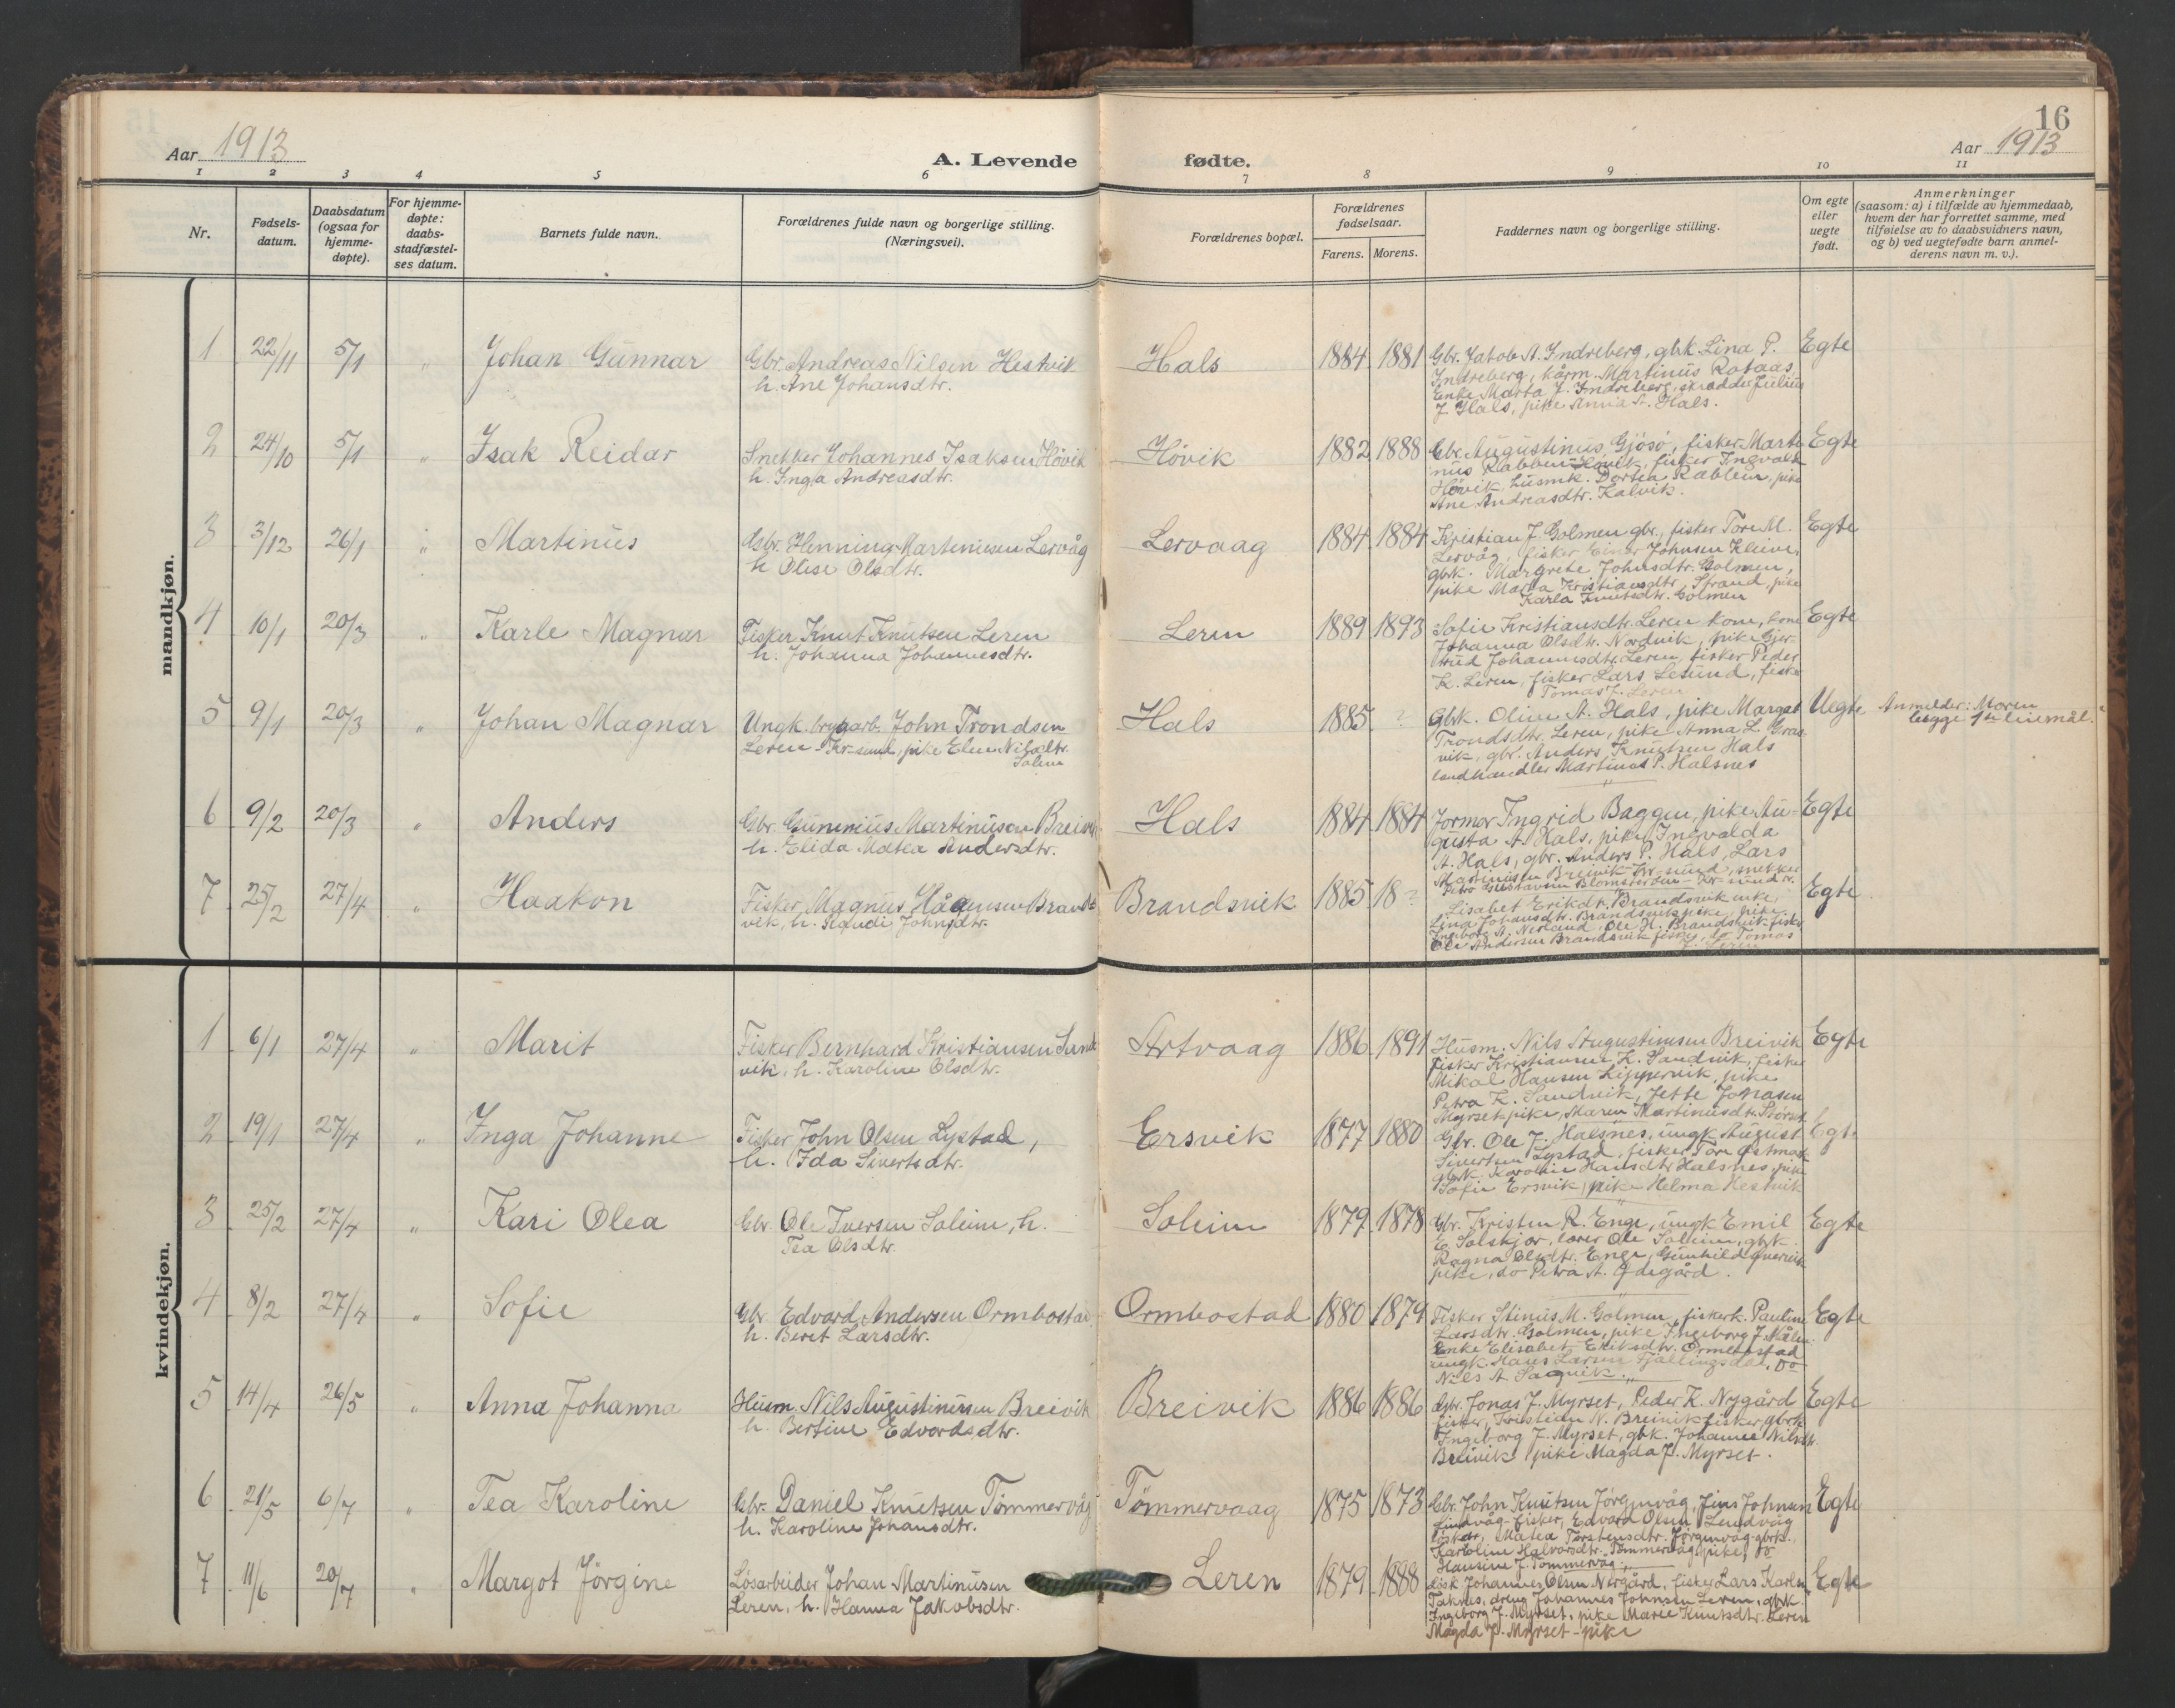 16
Aar 1913
A. Levende fødte.
Aar 1913
1 2 3 4 5 6 7 8 9 10 11
Nr.
Fødsels-
datum.
Daabsdatum
(ogsaa for
hjemme-
døpte).
For hjemme-
døpte:
daabs-
stadfæstel-
ses datum.
Barnets fulde navn.
Forældrenes fulde navn og borgerlige stilling.
(Næringsvei).
Forældrenes bopæl.
Forældrenes
fødselsaar.
Farens. Morens.
Faddernes navn og borgerlige stilling.
Om egte
eller
uegte
født.
Anmerkninger
(saasom: a) i tilfælde av hjemmedaab,
hvem der har forrettet samme, med
tilføielse av to daabsvidners navn,
og b) ved uegtefødte barn anmel-
derens navn m. v.).
mandkjøn.
1 22/11 5/1 " Johan Gunnar
Gbr. Andreas Nilsen Hestvik
h. Ane Johansdtr.
Hals 1884 1881
Gbr. Jakob A. Indreberg, gbk. Lina P.
Indreberg, kårm. Martinus Rotaas,
Enke Marta J. Indreberg, skrædder Julius
J. Hals, pike Anna A. Hals.
Egte
2 24/10 5/1 " Isak Reidar
Snekker Johannes Isaksen Hövik
h. Inga Andreasdtr.
Hövik 1882 1888
Gbr. Augustinus Gjösö, fisker Marti-
nus Rabben Hövik, fisker Ingvald
Hövik, husmk. Dortea Rabben, pike
Ane Andreasdtr. Kalvik.
Egte
3 3/12 26/1 " Martinus
Gbr. Henning Martinusen Lervåg
h Olise Olsdtr.
Lervaag 1884 1884
Kristian J. Golmen gbr., fisker Tore M.
Lervåg, fisker Einar Johnsen Kleive,
gbrk. Margrete Johnsdtr. Golmen,
pike Marta Kristiansdtr. Strand, pike
Karla Knutsdtr. Golmen
Egte
4 10/1 20/3 " Karle Magnar
Fisker Knut Knutsen Leren
h. Johanna Johannesdtr.
Leren 1889 1893
Sofie Kristiansdtr. Leren kone, kone
Johanna Olsdtr. Nordvik, pike Gjer-
trud Johannesdtr. Leren, fisker Peder
K. Leren, fisker Lars Lesund, fisker
Tomas J. Leren
Egte
5 9/1 20/3 " Johan Magnar
Ungk. bryggarb. John Trondsen
Leren - Kr-sund, pike Elen Nilsdtr.
Soleim
Hals 1885 ?
Gbk. Oline A. Hals, pike Margot
Trondsdtr. Leren, pike Anna L. Gras-
vik, gbr. Anders Knutsen Hals
landhandler Martinus P. Halsnes
Uegte
Anmelder: Moren
begge 1ste leiemål.
6 9/2 20/3 " Anders
Gbr. Gunerius Martinusen Breivik
h. Elida Matea Andersdtr.
Hals 1884 1884
Jormor Ingrid Baggen, pike Au-
gusta A. Hals, pike Ingvalda
A. Hals, gbr. Anders P. Hals, Lars
Martinusen Breivik Kr-sund, snekker
Petro Gustavsen Blomsterøen - Kr-sund
Egte
7 25/2 27/4 " Haakon
Fisker Magnus Håkensen Brands-
vik, h. Randi Johnsdtr.
Brandsvik 1885 18 ?
Lisabet Eriksdtr. Brandsvik enke,
Lina Johansdtr. Brandsvik pike, pike
Ingeborg A. Nerland, Ole H. Brandsvik fisker
Ole Andersen Brandsvik fisker, do Tomas
J. Leren
Egte
kvindekjøn.
1 6/1 27/4 " Marit
Fisker Bernhard Kristiansen Sand-
vik, h. Karoline Olsdtr.
Artvaag 1886 1891
Husm. Nils Augustinusen Breivik
fisker Kristiansen K. Sandvik, fisker
Mikal Hansen Lippervik, pike
Petra K. Sandvik, Jette Jonasen
Myrset pike, Maren Martinusdtr. Storset
Egte
2 19/1 27/4 " Inga Johanne
Fisker John Olsen Lystad,
h. Ida Sivertsdtr.
Ersvik 1877 1880
Gbr. Ole J. Halsnes, ungk. August
Sivertsen Lystad, fisker Tore Østmark
gbrk. Karoline Hansdtr Halsnes, pike
Sofie Ersvik, pike Helma Hestvik
Egte
3 25/2 27/4 " Kari Olea
Gbr. Ole Iversen Soleim, h.
Tea Olsdtr.
Soleim 1879 1878
Gbr. Kristen R. Enge, ungk Emil
E. Solskjør, lærer Ole Soleim, gbk.
Ragna Olsdtr. Enge, Gunhild
pike, do Petra A. Ødegård.
Egte
4 8/2 27/4 " Sofie
Gbr. Edvard Andersen Ormbostad
h. Beret Larsdtr.
Ormbostad 1880 1879
Fisker Stinus M. Golmen, fiskerk. Pauline
Larsdtr. Golmen, pike Ingeborg J.
Enke Elisabet Eriksdtr. Ormbostad
ungk. Hans Larsen Fjællingsdal, do
Nils A.
Egte
5 14/4 26/5 " Anna Johanna
Husm. Nils Augustinusen Breivik
h. Bertine Edvardsdtr.
Breivik 1886 1886
Gbr. Jonas J. Myrset, Peder K. Nygård
fisker, Kristian N. Breivik fisker, gbrk
Ingeborg J. Myrset, gbk. Johanne Nilsdtr.
Breivik, pike Magda J. Myrset.
Egte
6 21/5 6/7 " Tea Karoline
Gbr. Daniel Knutsen Tömmervåg
h. Karoline Johansdtr.
Tömmervaag 1875 1873
Gbr. John Knutsen Jörgenvåg, Jens Johnsen
Lindvåg - fisker, Edvard Olsen Lendvåg
Matea Torstensdtr. Jörgenvåg - gbrk.
Karoline Halvorsdtr. Tömmervåg, pike, do
Hansine J. Tömmervåg.
Egte
7 11/6 20/7 " Margot Jörgine
Lösarbeider Johan Martinusen
Leren, h. Hanna Jakobsdtr.
Leren 1879 1888
Johannes Olsen Nergård, fisker Lars Karlsen
Taknes, dreng Johannes Johnsen Leren, gbrk.
Ingeborg J. Myrset, pike Marie Knutsdtr. Leren
Magda J. Myrset - pike
Egte